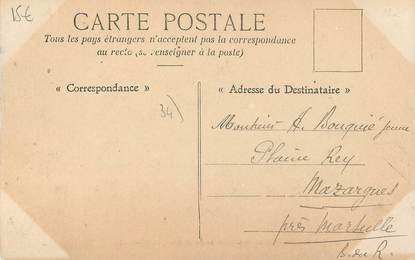 15€
CARTE POSTALE
Tous les pays étrangers n'acceptent pas la correspondance
au recto (se renseigner à la poste)
« Correspondance »
« Adresse du Destinataire »
34)
Monsieur A. Bouquié jeune
Plaine Rey
Mazargues
près Marseille
B. du R.